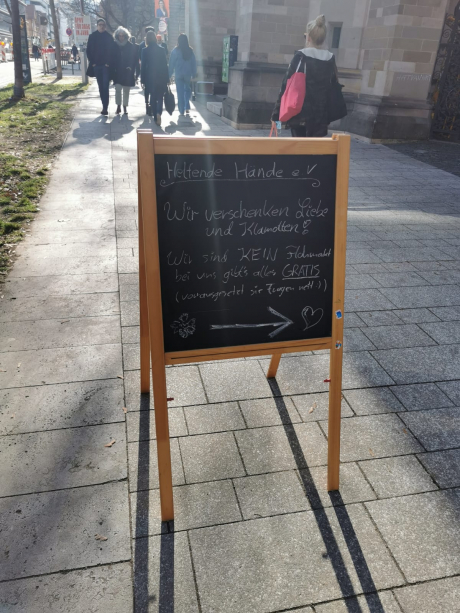 Helfende Hände e.V
Wir verschenken Liebe
und Klamotten &
Wir sind KEIN Flohmarkt
bei uns gibt's alles GRATIS
(vorausgesetzt sie fragen nett :))